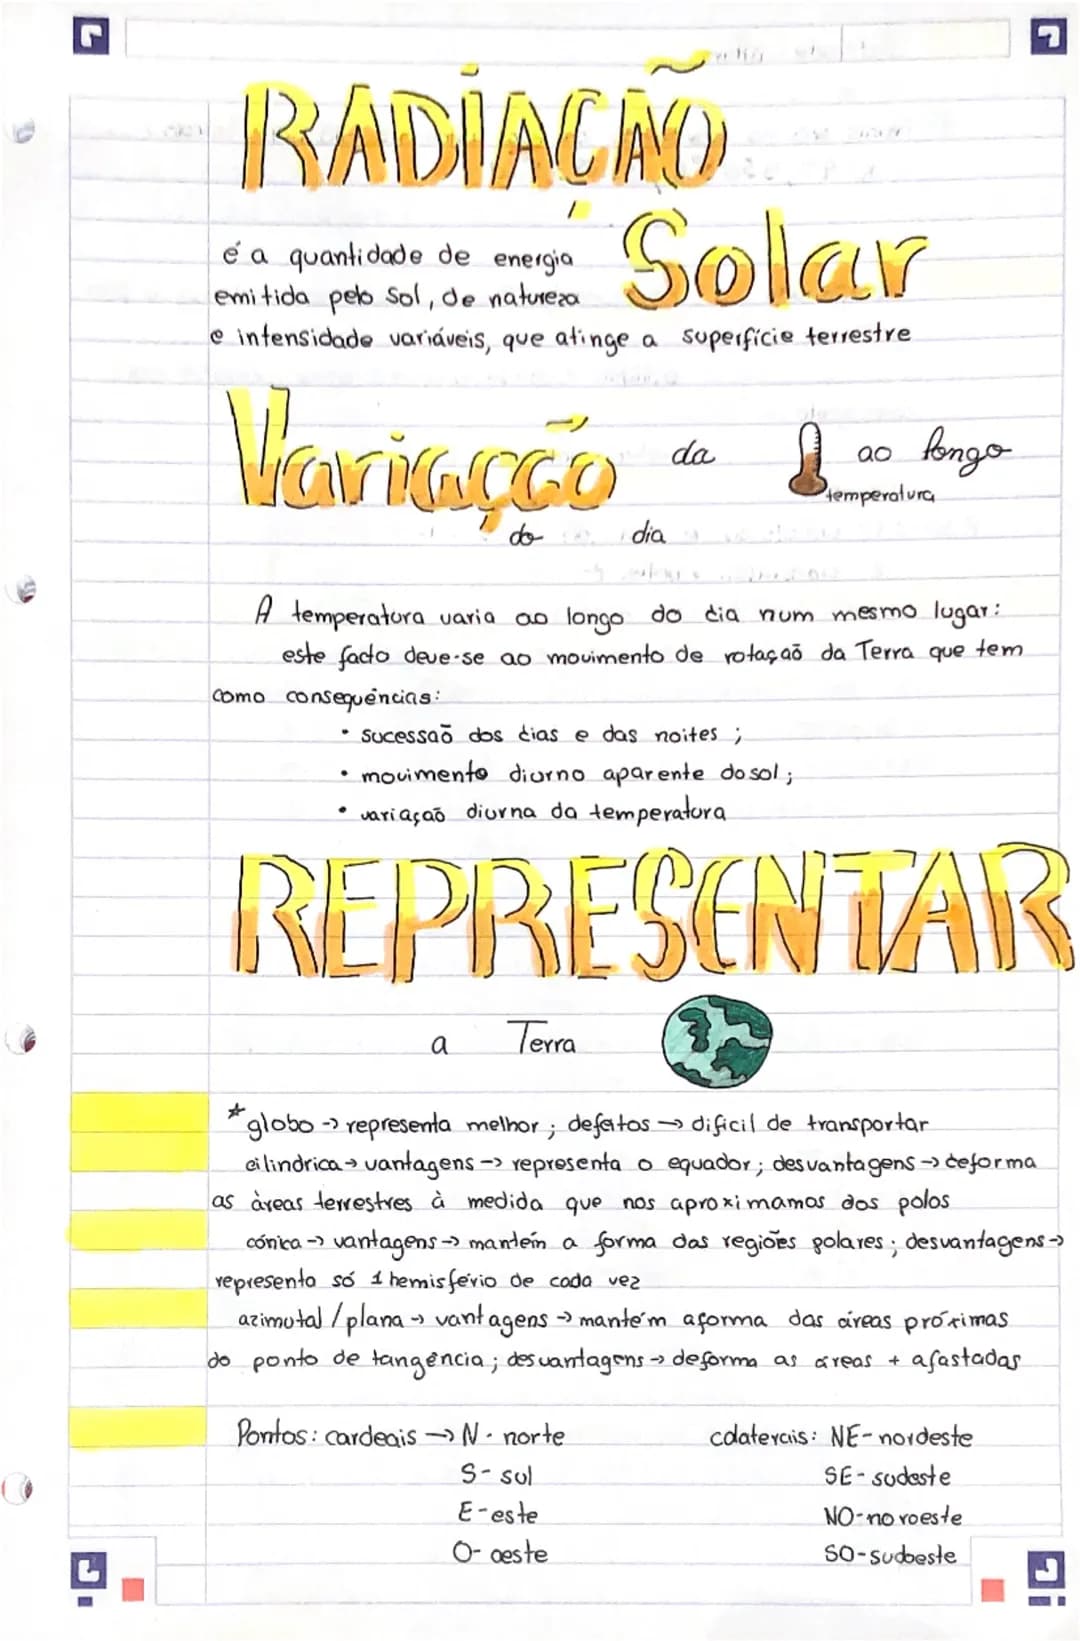 RADIAÇÃO
Solar
é a quantidade de energia
emitida pelo Sol, de natureza
e intensidade variáveis, que atinge a superfície terrestre
Variação da temperatura ao longo
do dia
A temperatura varia ao longo do dia num mesmo lugar:
este facto deve-se ao movimento de rotaçaõ da Terra que tem
como consequências:
• sucessaõ dos dias e das noites ;
• movimento diurno aparente do sol ;
• variaçaõ diurna da temperatura
REPRESENTAR
a Terra
* globo -> representa melhor ; defeitos -> dificil de transportar
cilindrica -> vantagens -> representa o equador ; desvantagens -> deforma
as àreas terrestres à medida que nos aproximamos dos polos
cónica -> vantagens -> mantém a forma das regiões polares ; desvantagens ->
representa só 1 hemisfério de cada vez
azimutal / plana -> vantagens -> mantém a forma das áreas próximas
do ponto de tangência ; desvantagens -> deforma as áreas + afastadas
Pontos: cardeais -> N - norte colaterais: NE - nordeste
S - sul SE - sudeste
E - este NO - noroeste
O - oeste SO - sudoeste